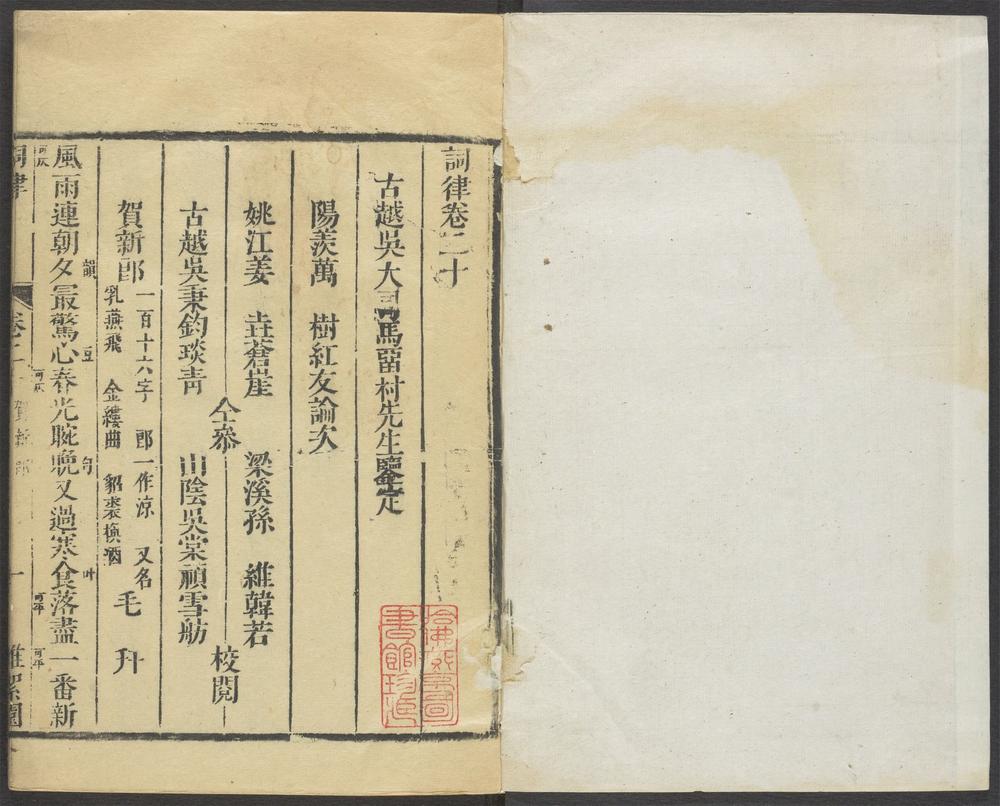 詞律卷二十
古越吳大司馬畱村先生鑒定
陽羨萬 樹紅友論次
姚江姜 垚蒼崖 梁溪孫 維韓若
仝叅 校閱
古越吳秉鈞琰青 山陰吳棠禎雪舫
賀新郎 一百十六字 郎一作涼 又名
乳燕飛 金縷曲 貂裘換酒 毛 幵
風雨連朝夕韻最驚心豆春光晼晚句又過寒食叶落盡一番新
可仄 可仄 可平 可平
詞律 卷二 賀新郎 一 堆絮園
哈佛燕京圖
書館珍